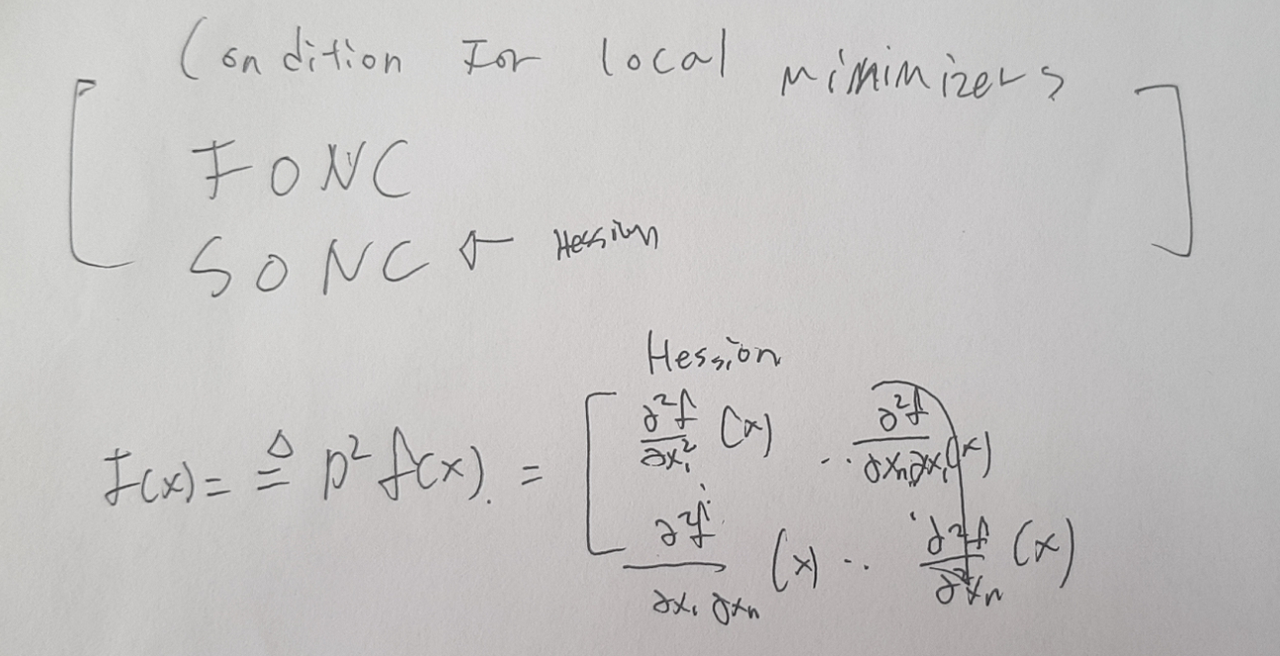 Condition For local minimizers
FONC
SONC ← Hession
Hession
F(x)= ≜ D² f(x). = [ ∂²f/∂x₁² (x) ·· ∂²f/∂xₙ∂x₁ (x)
∂²f/∂x₁ ∂xₙ (x) ·· ∂²f/∂²xₙ (x) ]